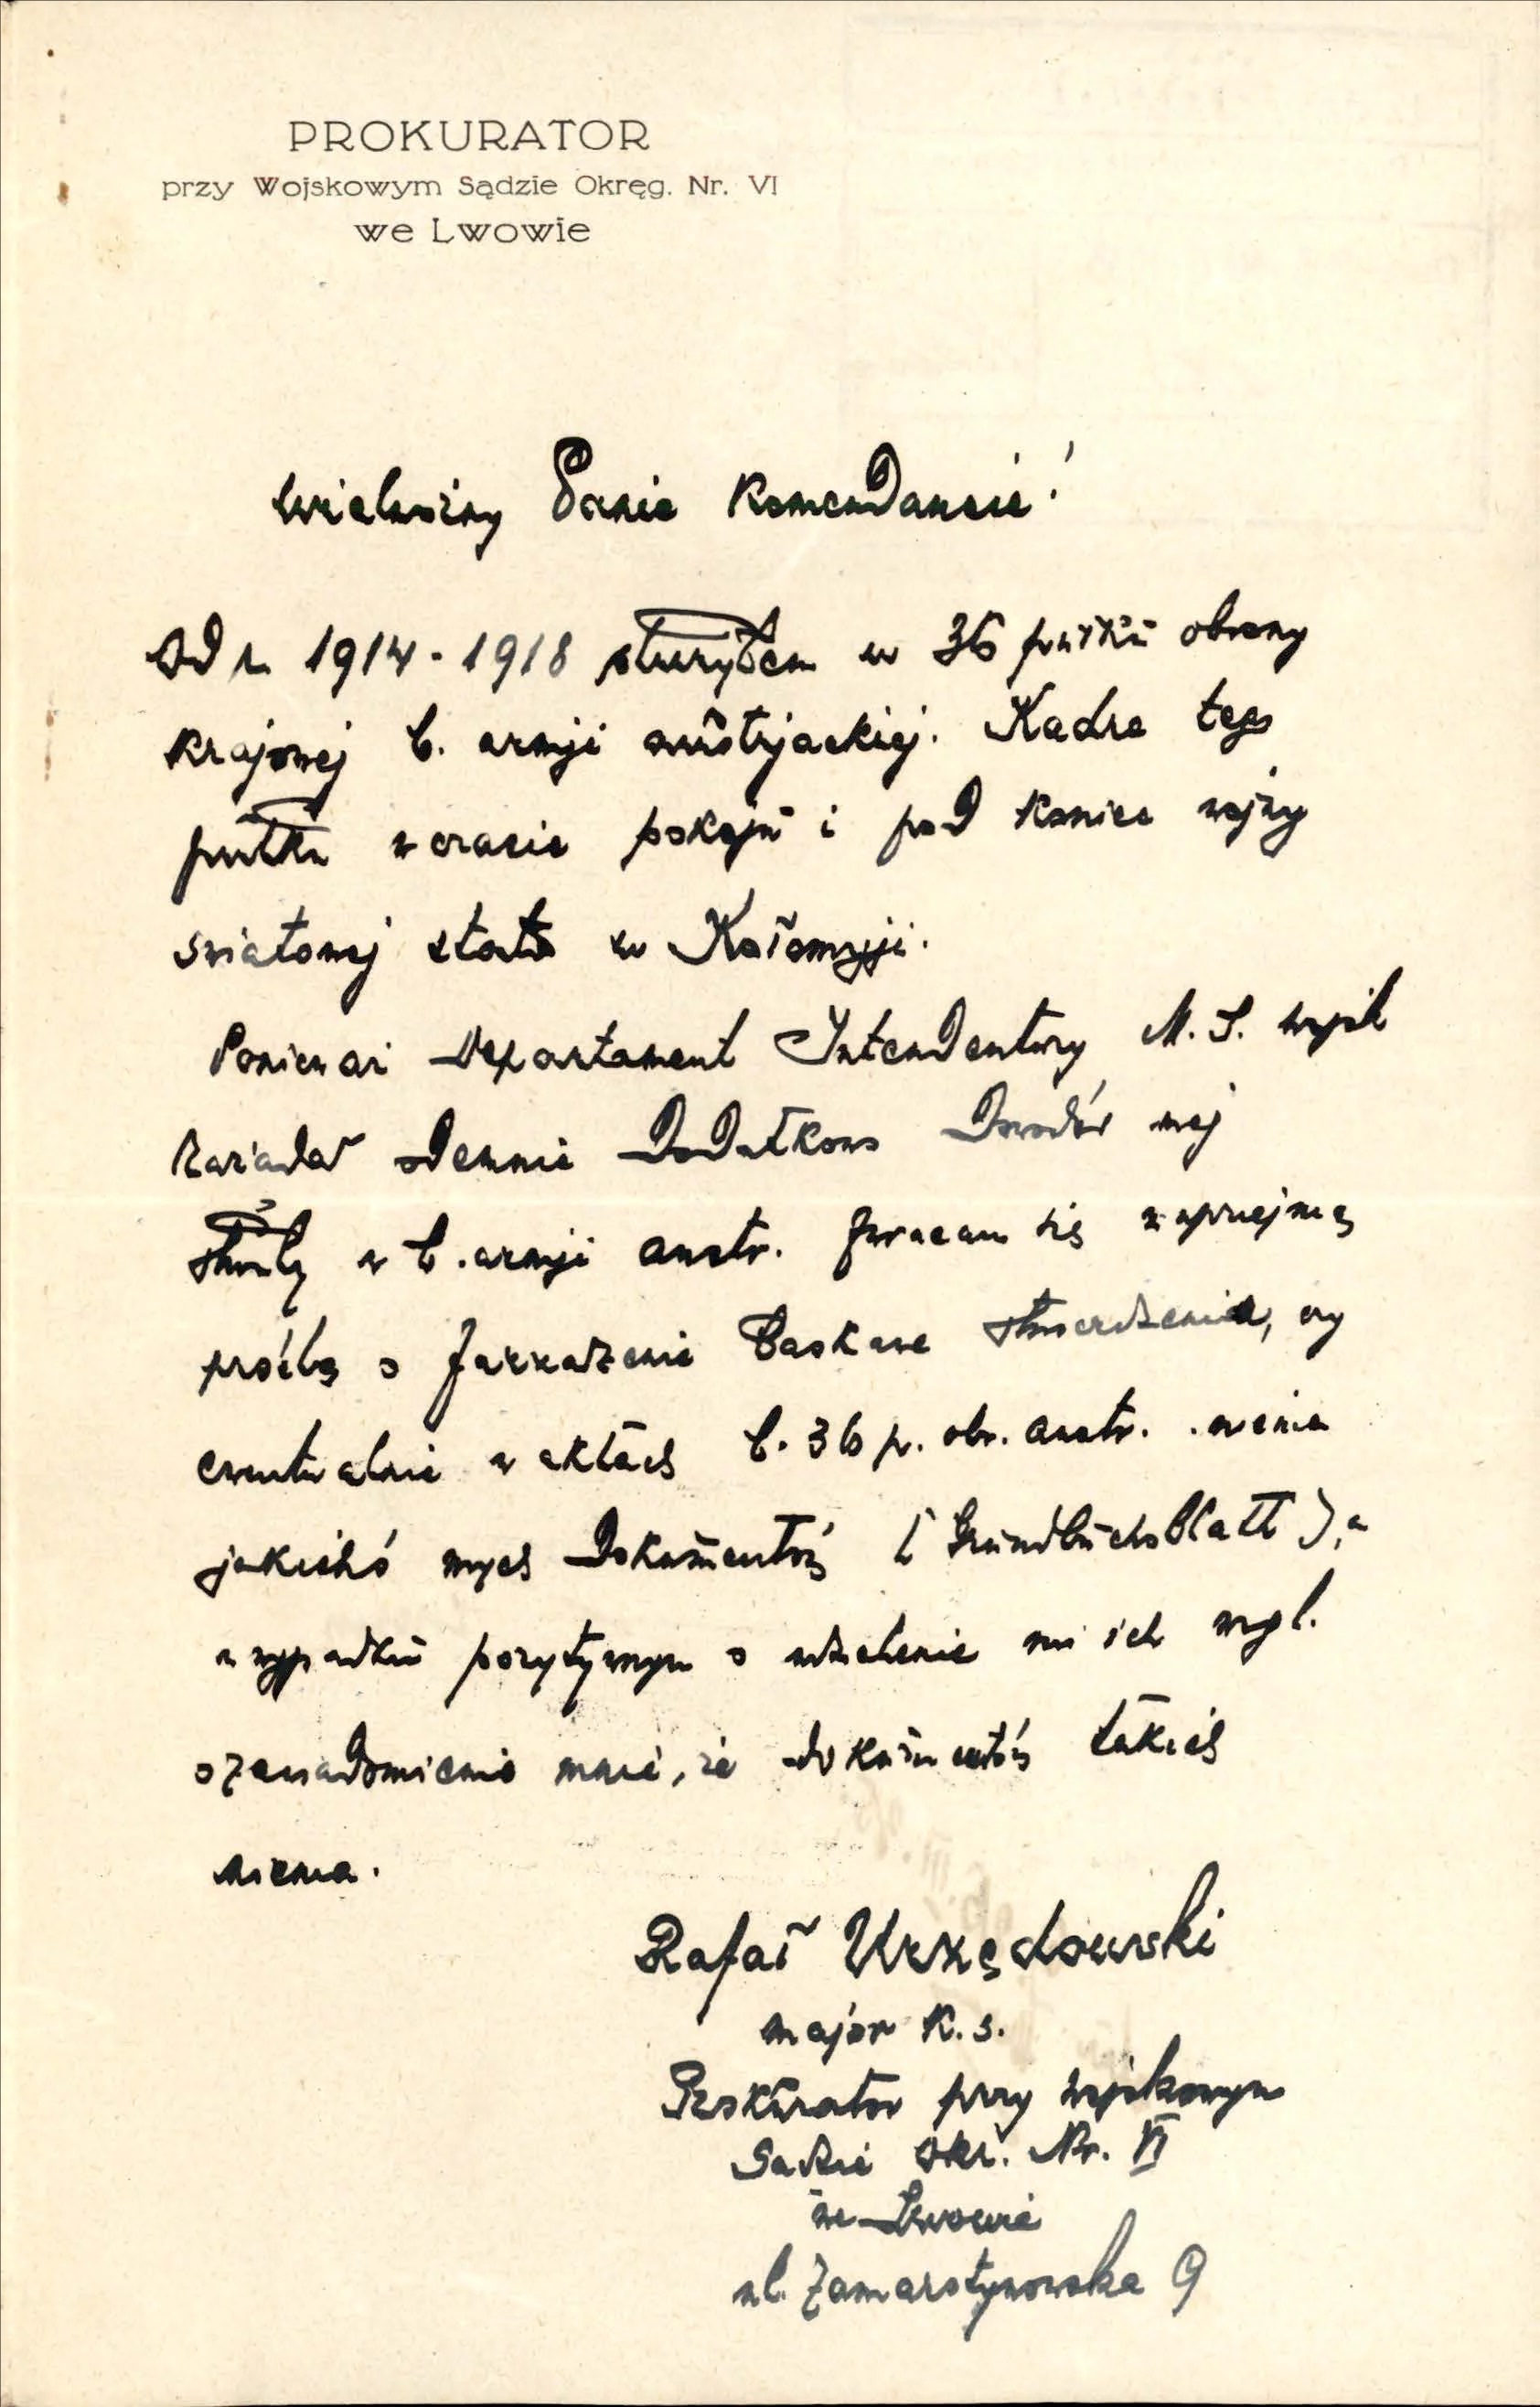 PROKURATOR
przy Wojskowym Sądzie Okręg. Nr. VI
we Lwowie
Wielmożny Panie Komendancie!
Od r. 1914-1918 służyłem w 36 pułku obrony
krajowej b. armji austrjackiej. Kadra tego
pułku w czasie pokoju i pod koniec wojny
światowej stała w Kołomyji.
Ponieważ Departament Intendentury M. S. Wojsk
zażądał odemnie dodatkowo dowodów mej
służby w b. armji austr. zwracam się z uprzejmą
prośbą o zarządzenie łaskawe stwierdzenia, czy
ewentualnie w aktach b. 36 p. obr. austr. niema
jakichś mych dokumentów (Grundbuchsblatt), a
w wypadku pozytywnym o udzielenie mi ich wzgl.
o zawiadomienie mnie, że dokumentów takich
niema.
Rafał Urzędowski
major K. S.
Prokurator przy Wojskowym
Sądzie Okr. Nr. VI
we Lwowie
ul. Zamarstynowska 9